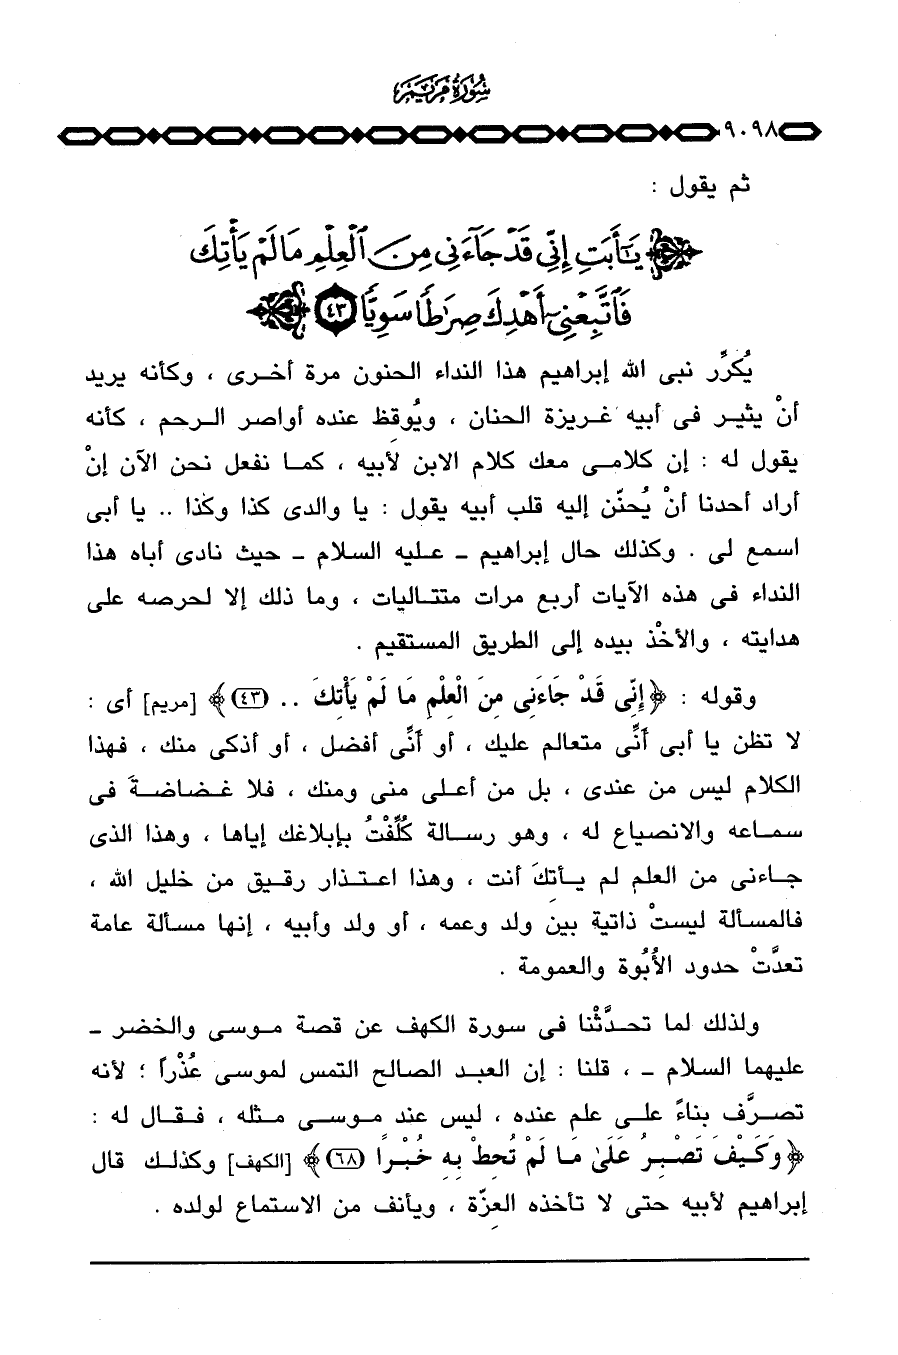 سورة مريم
٩٠٩٨
ثم يقول :
﴿ يَٰٓأَبَتِ إِنِّي قَدْ جَآءَنِي مِنَ ٱلْعِلْمِ مَا لَمْ يَأْتِكَ
فَٱتَّبِعْنِيٓ أَهْدِكَ صِرَٰطًا سَوِيًّا ٤٣ ﴾
يُكرِّر نبى الله إبراهيم هذا النداء الحنون مرة أخـرى ، وكأنه يريد
أنْ يثيـر فى أبيه غـريزة الحنان ، ويُوقظ عنده أواصر الـرحِم ، كأنه
يقول له : إن كلامـى معك كلام الابن لأبيه ، كمـا نفعل نحن الآن إنْ
أراد أحدنا أنْ يُحنّن إليه قلب أبيه يقول : يا والدى كذا وكذا .. يا أبى
اسمع لى . وكذلك حال إبراهيم ـ عليه السلام ـ حيث نادى أباه هذا
النداء فى هذه الآيات أربع مرات متتـاليات ، وما ذلك إلا لحرصه على
هدايته ، والأخْذ بيده إلى الطريق المستقيم .
وقوله : ﴿ إِنِّى قَدْ جَاءَنِى مِنَ الْعِلْمِ مَا لَمْ يَأْتِكَ .. (٤٣) ﴾ [مريم] أى :
لا تظن يا أبى أنَّى متعالم عليك ، أو أنَّى أفضل ، أو أذكى منك ، فـهذا
الكلام ليس من عندى ، بل من أعـلـى منى ومنك ، فلا غـضاضـةَ فى
سمـاعه والانصياع له ، وهو رسـالة كُلِّفْتُ بإبلاغك إياها ، وهذا الذى
جـاءنى من العلم لم يـأتِكَ أنت ، وهذا اعـتـذار رقـيق من خليل الله ،
فالمسألة ليستْ ذاتية بين ولد وعمه ، أو ولد وأبيه ، إنها مسـألة عامة
تعدَّتْ حدود الأُبُوة والعمومة .
ولذلك لما تحـدَّثْنا فى سورة الكهف عن قصة مـوسى والخضر ـ
عليهما السلام ـ ، قلنا : إن العبـد الصالح التمس لموسى عُذْراً ؛ لأنه
تصـرَّف بناءً علـى علم عنده ، ليس عند مـوسـى مـثله ، فـقـال له :
﴿ وَكَيْفَ تَصْبِرُ عَلَىٰ مَا لَمْ تُحِطْ بِهِ خُبْرًا (٦٨) ﴾ [الكهف] وكذلـك قال
إبراهيم لأبيه حتى لا تأخذه العِزّة ، ويأنف من الاستماع لولده .